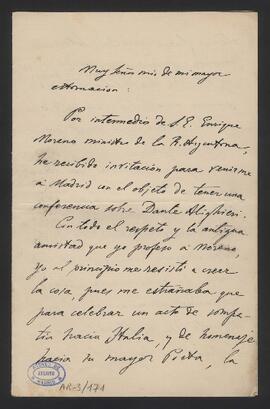 Muy Señor mio de mi mayor
estimacion:
Por intermedio de S. E. Enrique
Moreno ministro de la R. Argentina,
he recibido invitación para venirme
à Madrid con el objeto de tener una
conferencia sobre Dante Alighieri.
Con todo el respeto y la antigua
amistad que yo profeso à Moreno,
yo al principio me resisti a creer
la cosa, pues me estrañaba que
para celebrar un acto de simpa-
tia hacia Italia, y de homenaje
hacia su mayor Poeta, la
ATENEO DE
MADRID
AR-3/171